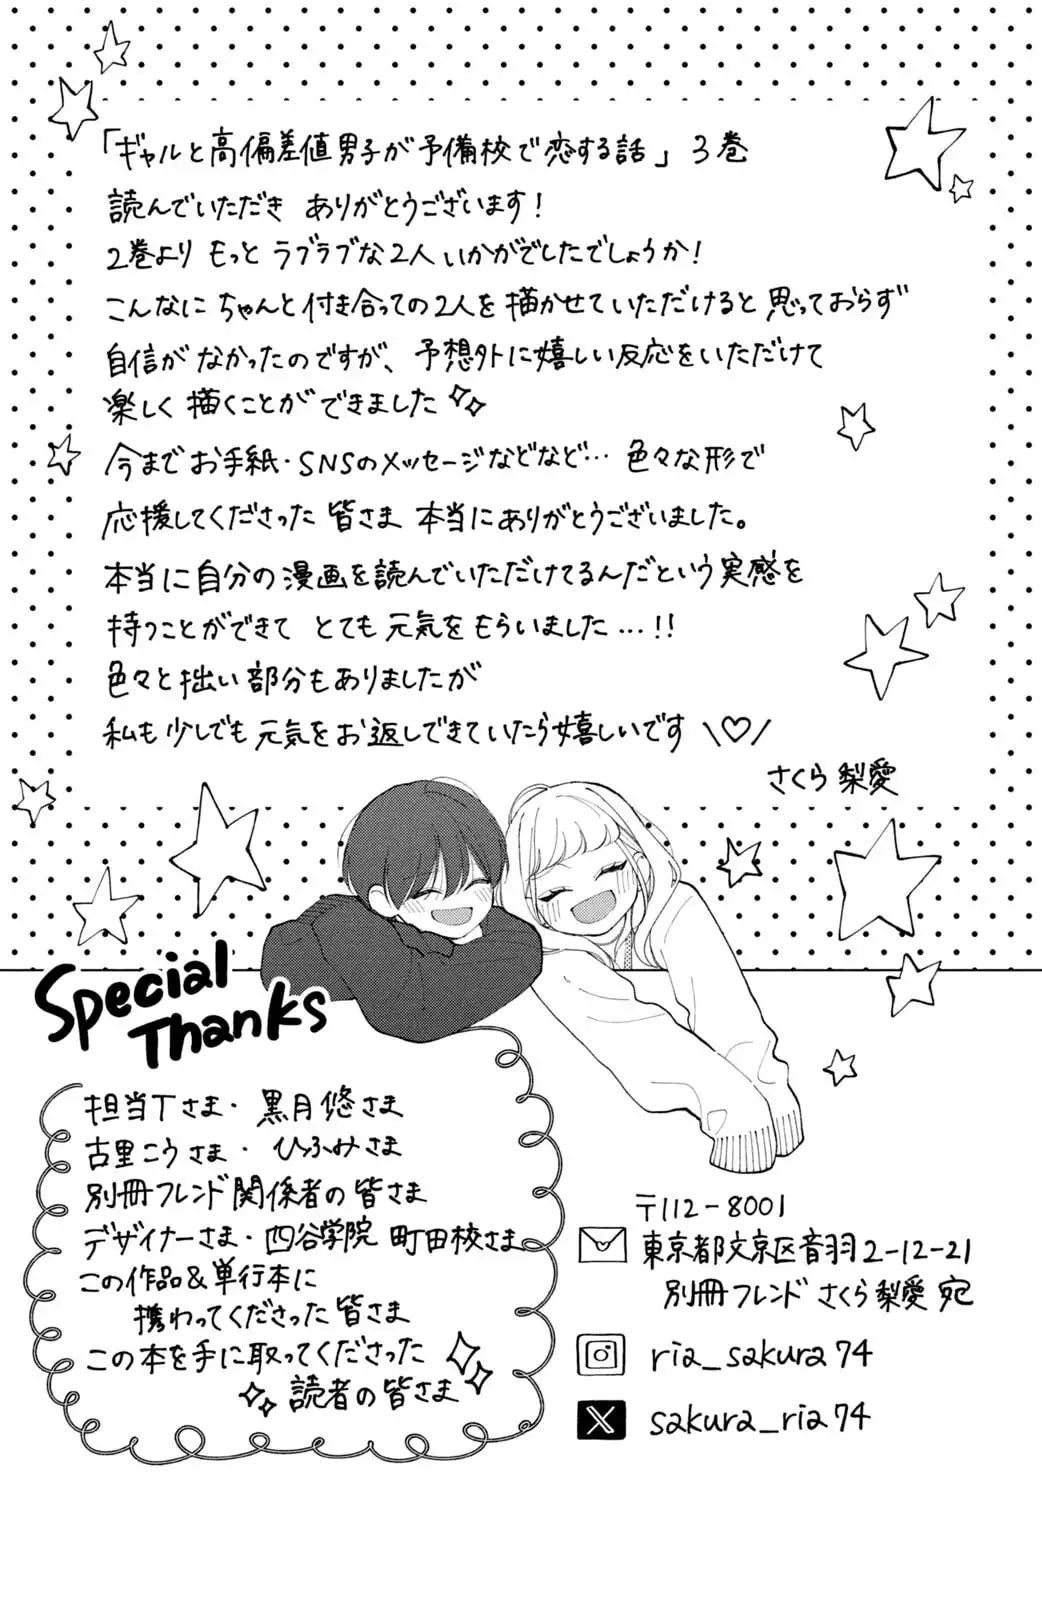 「ギャルと高偏差値男子が予備校で恋する話」3巻
読んでいただき ありがとうございます!
2巻より もっと ラブラブな2人 いかがでしたでしょうか!
こんなに ちゃんと付き合っての2人を描かせていただけると思っておらず
自信がなかったのですが、予想外に嬉しい反応をいただけて
楽しく描くことができました
今までお手紙・SNSのメッセージなどなど…色々な形で
応援してくださった皆さま 本当にありがとうございました。
本当に自分の漫画を読んでいただけてるんだという実感を
持つことができて とても元気をもらいました…!!
色々と拙い部分もありましたが
私も少しでも元気をお返しできていたら嬉しいです \♡/
さくら梨愛
Special
Thanks
担当Tさま・黒月悠さま
古里こうさま・ひふみさま
別冊フレンド関係者の皆さま
デザイナーさま・四谷学院 町田校さま
この作品&単行本に
携わってくださった皆さま
この本を手に取ってくださった
読者の皆さま
〒112-8001
東京都文京区音羽2-12-21
別冊フレンド さくら梨愛 宛
ria_sakura74
sakura_ria74